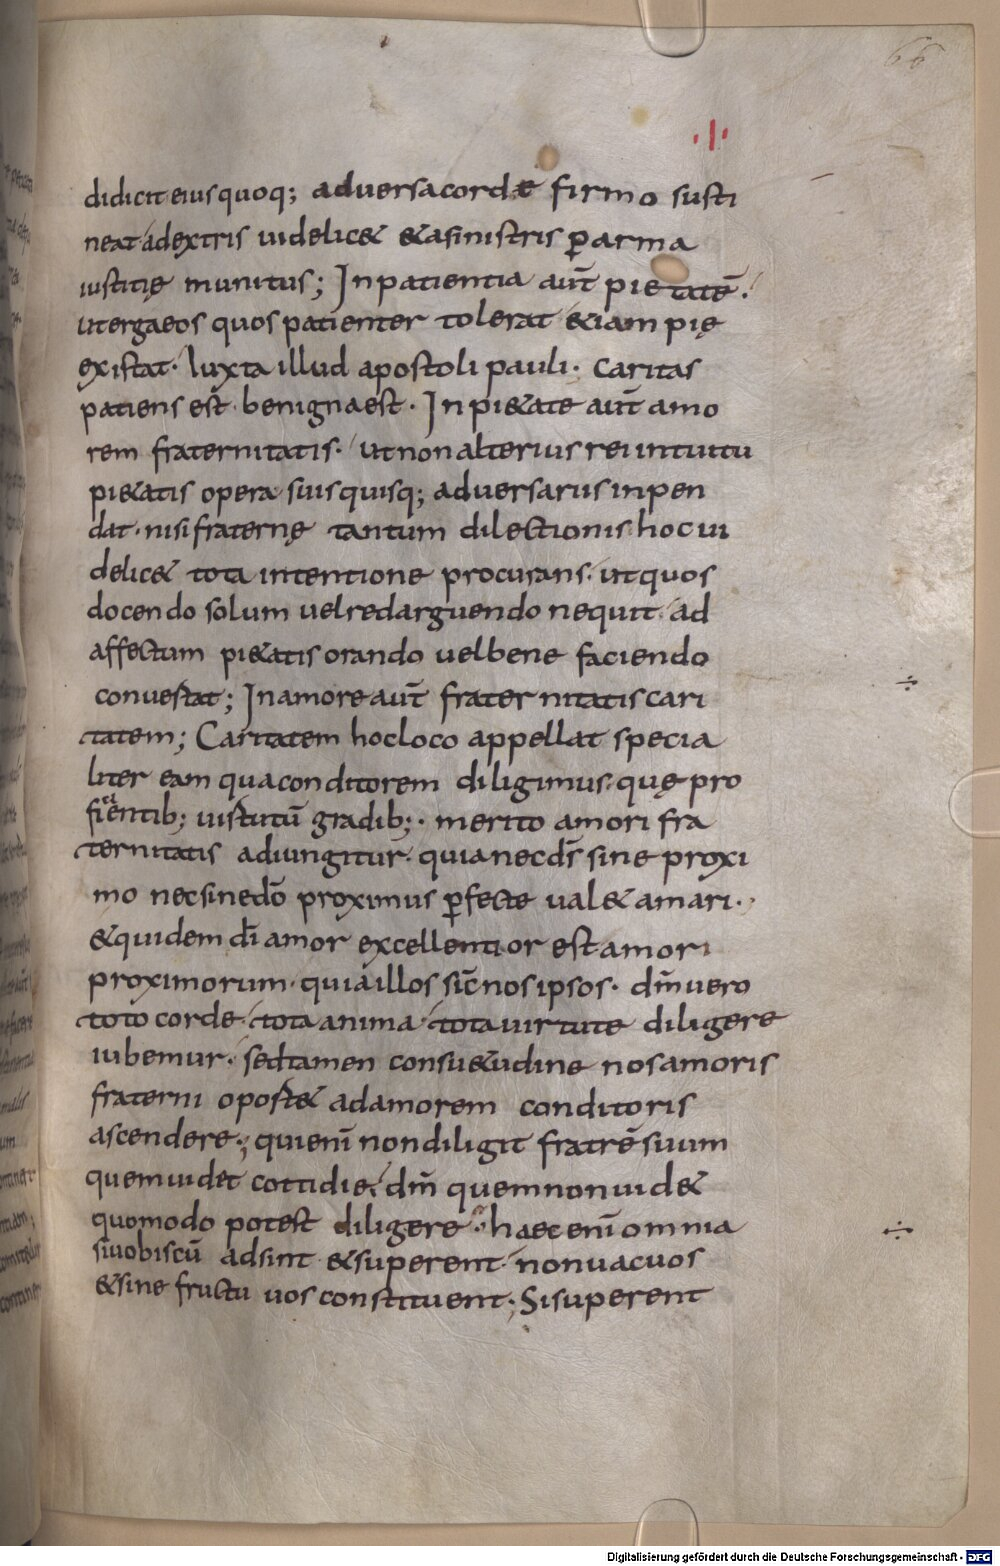 66
·I·
didicit eius quoq; aduersa cordæ firmo susti
neat adextris uidelic& &asinistris ꝑarma
iustitię munitus; Inpatientia aut̄ pietatē.
ut ergaeos quos patienter tolerat &iam pię
existat· Iuxta illud apostoli pauli· Caritas
patiens est· benigna est· Inpi&ate aut̄ amo
rem fraternitatis· ut non alterius rei intuitu
pi&atis opera suis quisq; aduersarus inpen
dat· nisi fraternę tantum dilectionis hoc ui
delic& tota intentione procurans· ut quos
docendo solum uel redarguendo nequit· ad
affectum pi&atis orando uel bene faciendo
conuertat; In amore aut̄ fraternitatis cari
tatem; Caritatem hoc loco appellat specia
liter eam qua conditorem diligimus· quę pro
ficientib; uirtutū gradib;· merito amori fra
ternitatis adiungitur· quia nec ds̄ sine proxi
mo nec sine dō proximus ꝑfecte ual& amari·
&quidem dī amor excellentior est amori
proximorum· quia illos sic̄ nos ipsos· dm̄ uero
toto corde· tota anima· tota uirtute diligere
iubemur· sed tamen consu&udine nos amoris
fraterni oport& ad amorem conditoris
ascendere·; qui enī non diligit fratrē suum
quem uidet cottidie· dm̄ quem non uid&
quomodo potest diligere· haec enī omnia
si uobiscū adsint &superent· non uacuos
&sine fructu uos constituent·; Si superent
Digitalisierung gefördert durch die Deutsche Forschungsgemeinschaft - DFG